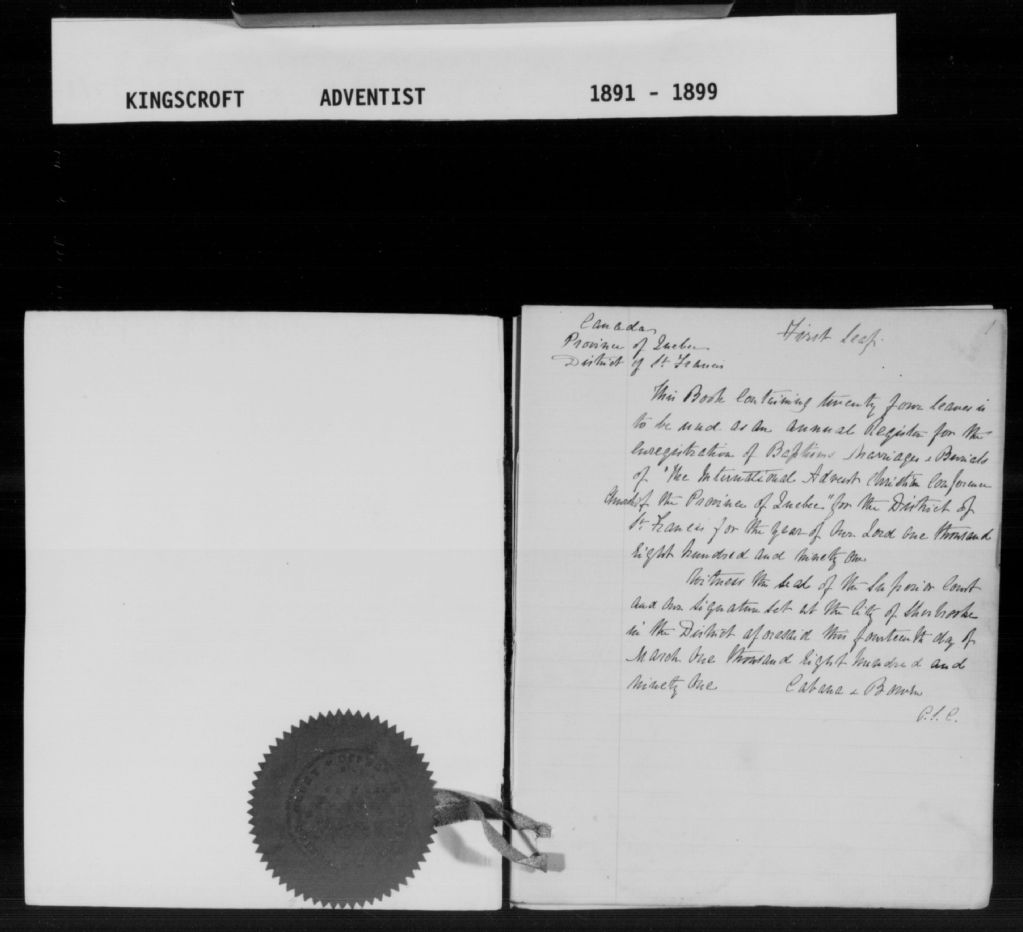 KINGSCROFT ADVENTIST 1891 - 1899
1
Canada
Province of Quebec
District of St Francis
First Leaf.
This Book Containing twenty four leaves is
to be used as an Annual Register for the
Enregistration of Baptisms Marriages & Burials
of "The International Advent Christian Conference
Church of the Province of Quebec" for the District of
St Francis for the year of Our Lord One thousand
Eight hundred and ninety one
Witness the seal of the Superior Court
and our signature set at the City of Sherbrooke
in the District aforesaid this fourteenth day of
March One thousand Eight hundred and
ninety One
Cabana & Bowen
P.S.C.